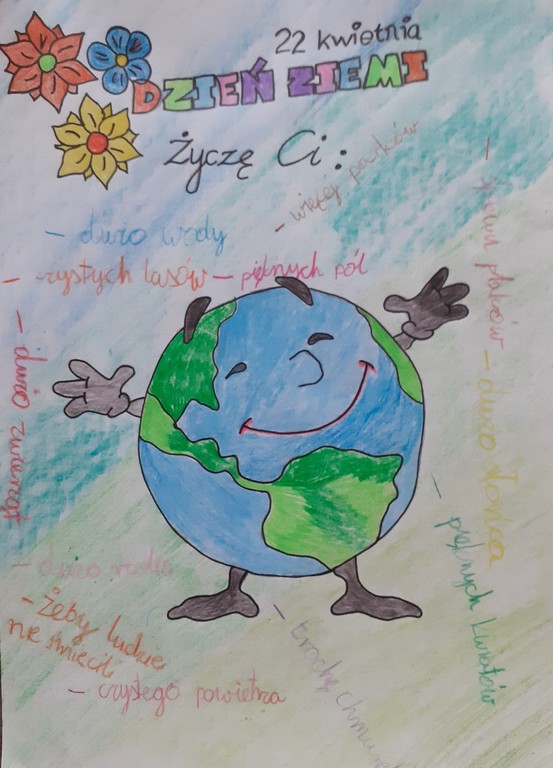 22 kwietnia
DZIEŃ ZIEMI
Życzę Ci:
- więcej parków
- dużo wody
- czystych lasów
- pięknych pól
- śpiewu ptaków
- dużo słońca
- dużo zwierząt
- pięknych kwiatów
- dużo
- żeby ludzie
nie śmiecili
- trochę chmurek
- czystego powietrza